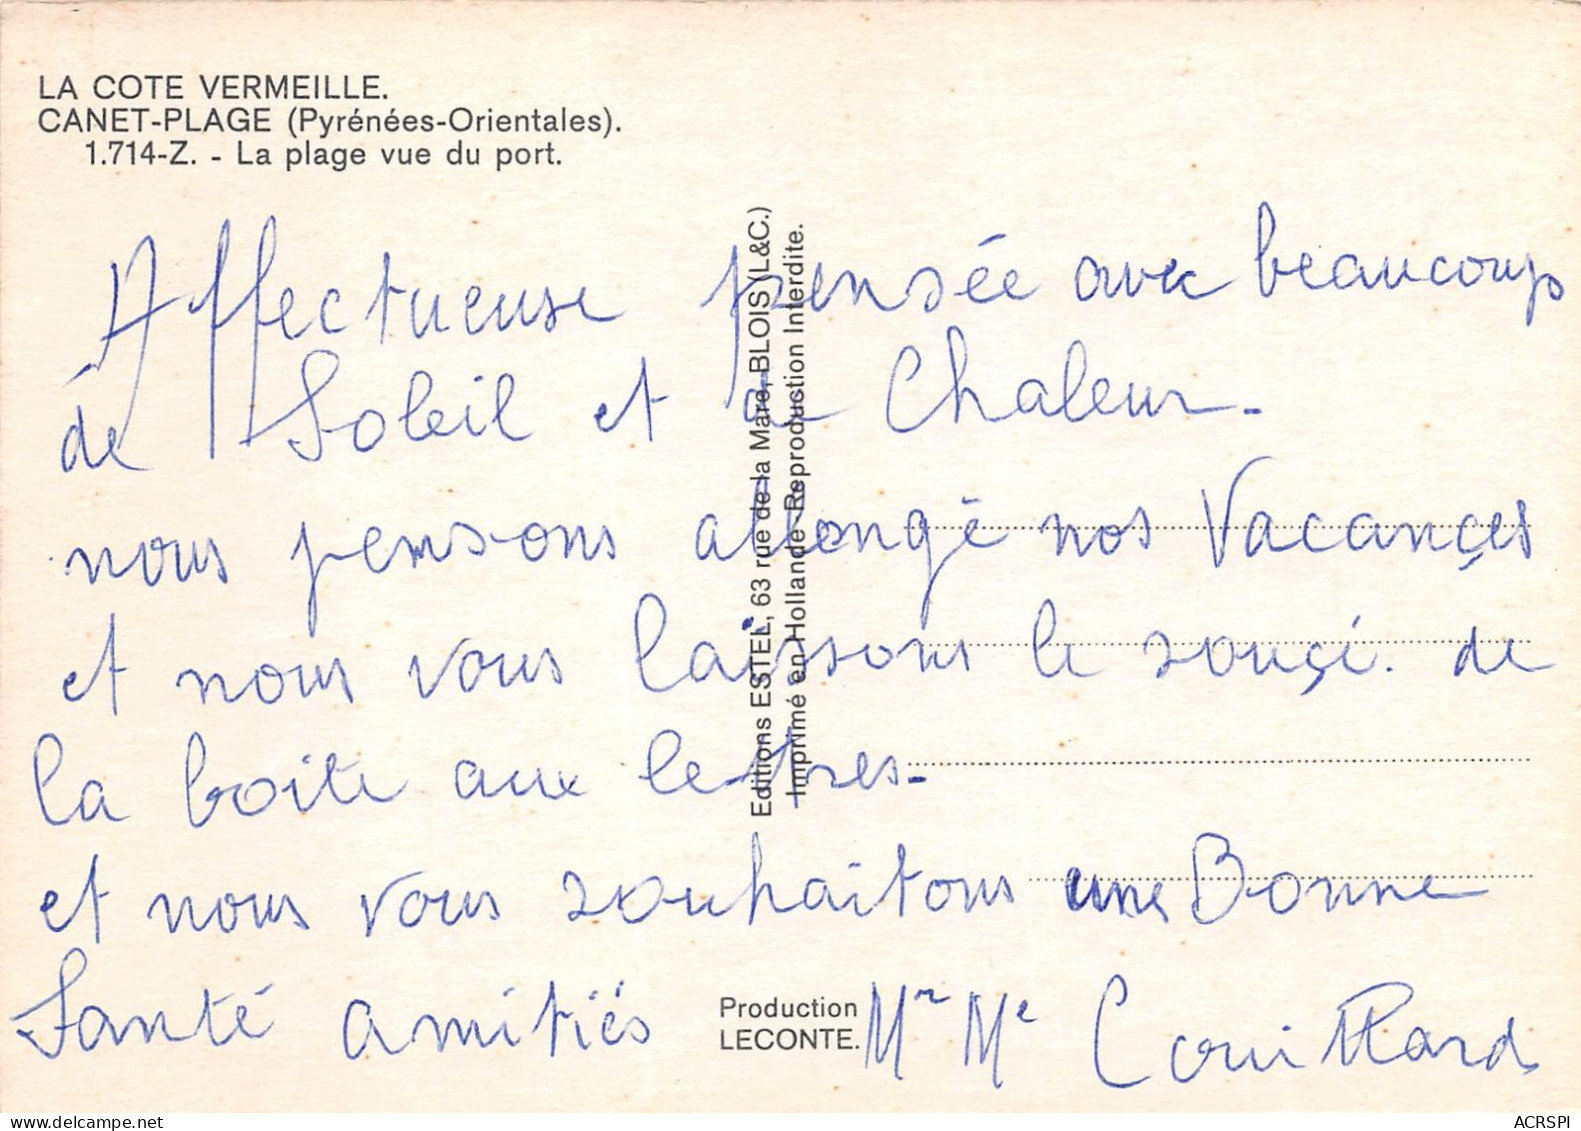 LA COTE VERMEILLE.
CANET-PLAGE (Pyrénées-Orientales).
1.714-Z. - La plage vue du port.
Affectueuse pensée avec beaucoup
de Soleil et de Chaleur.
nous pensons allongé nos Vacançes
et nous vous laissons le souçi. de
la boite aux lettres.
et nous vous souhaitons une Bonne
Santé amitiés Mr Me Couillard
Editions ESTEL, 63 rue de la Mare, BLOIS (L&C.)
Imprimé en Hollande-Reproduction Interdite.
Production
LECONTE.
ACRSPI